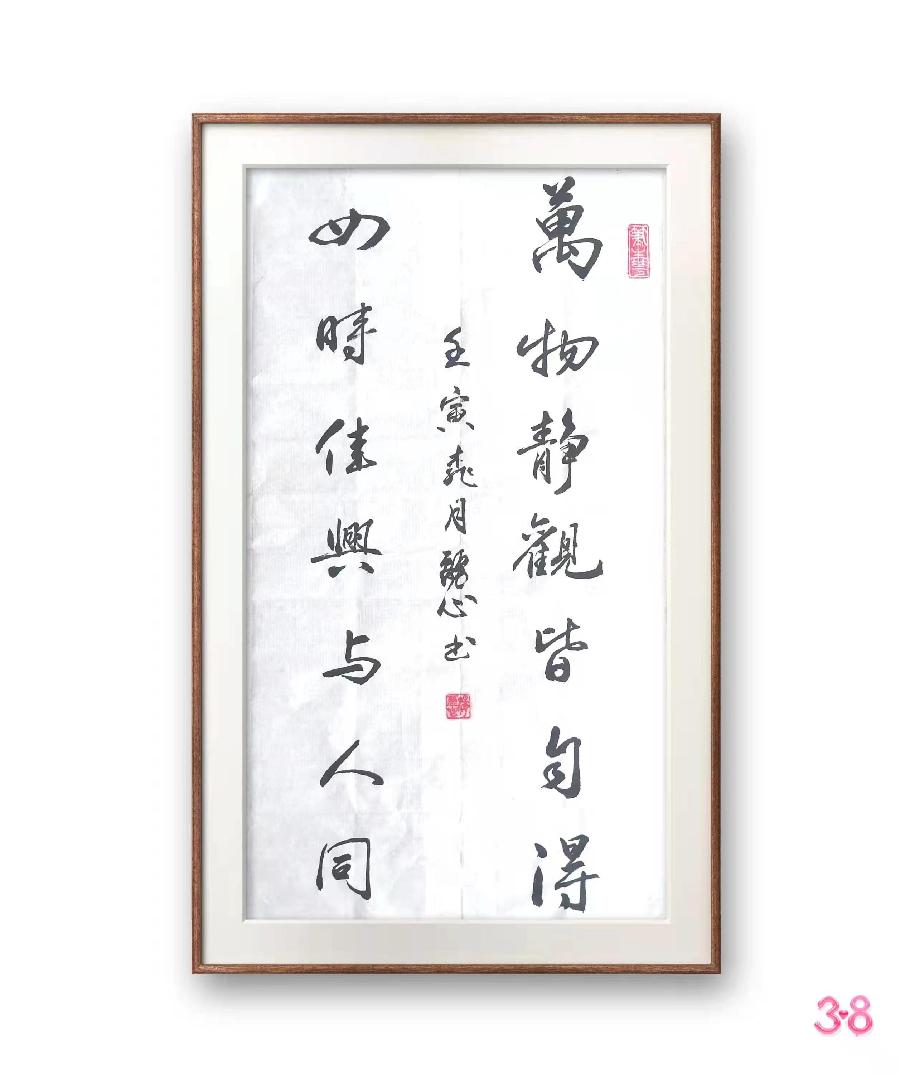 萬物静觀皆自得
四時佳興与人同
壬寅桃月心书
3•8